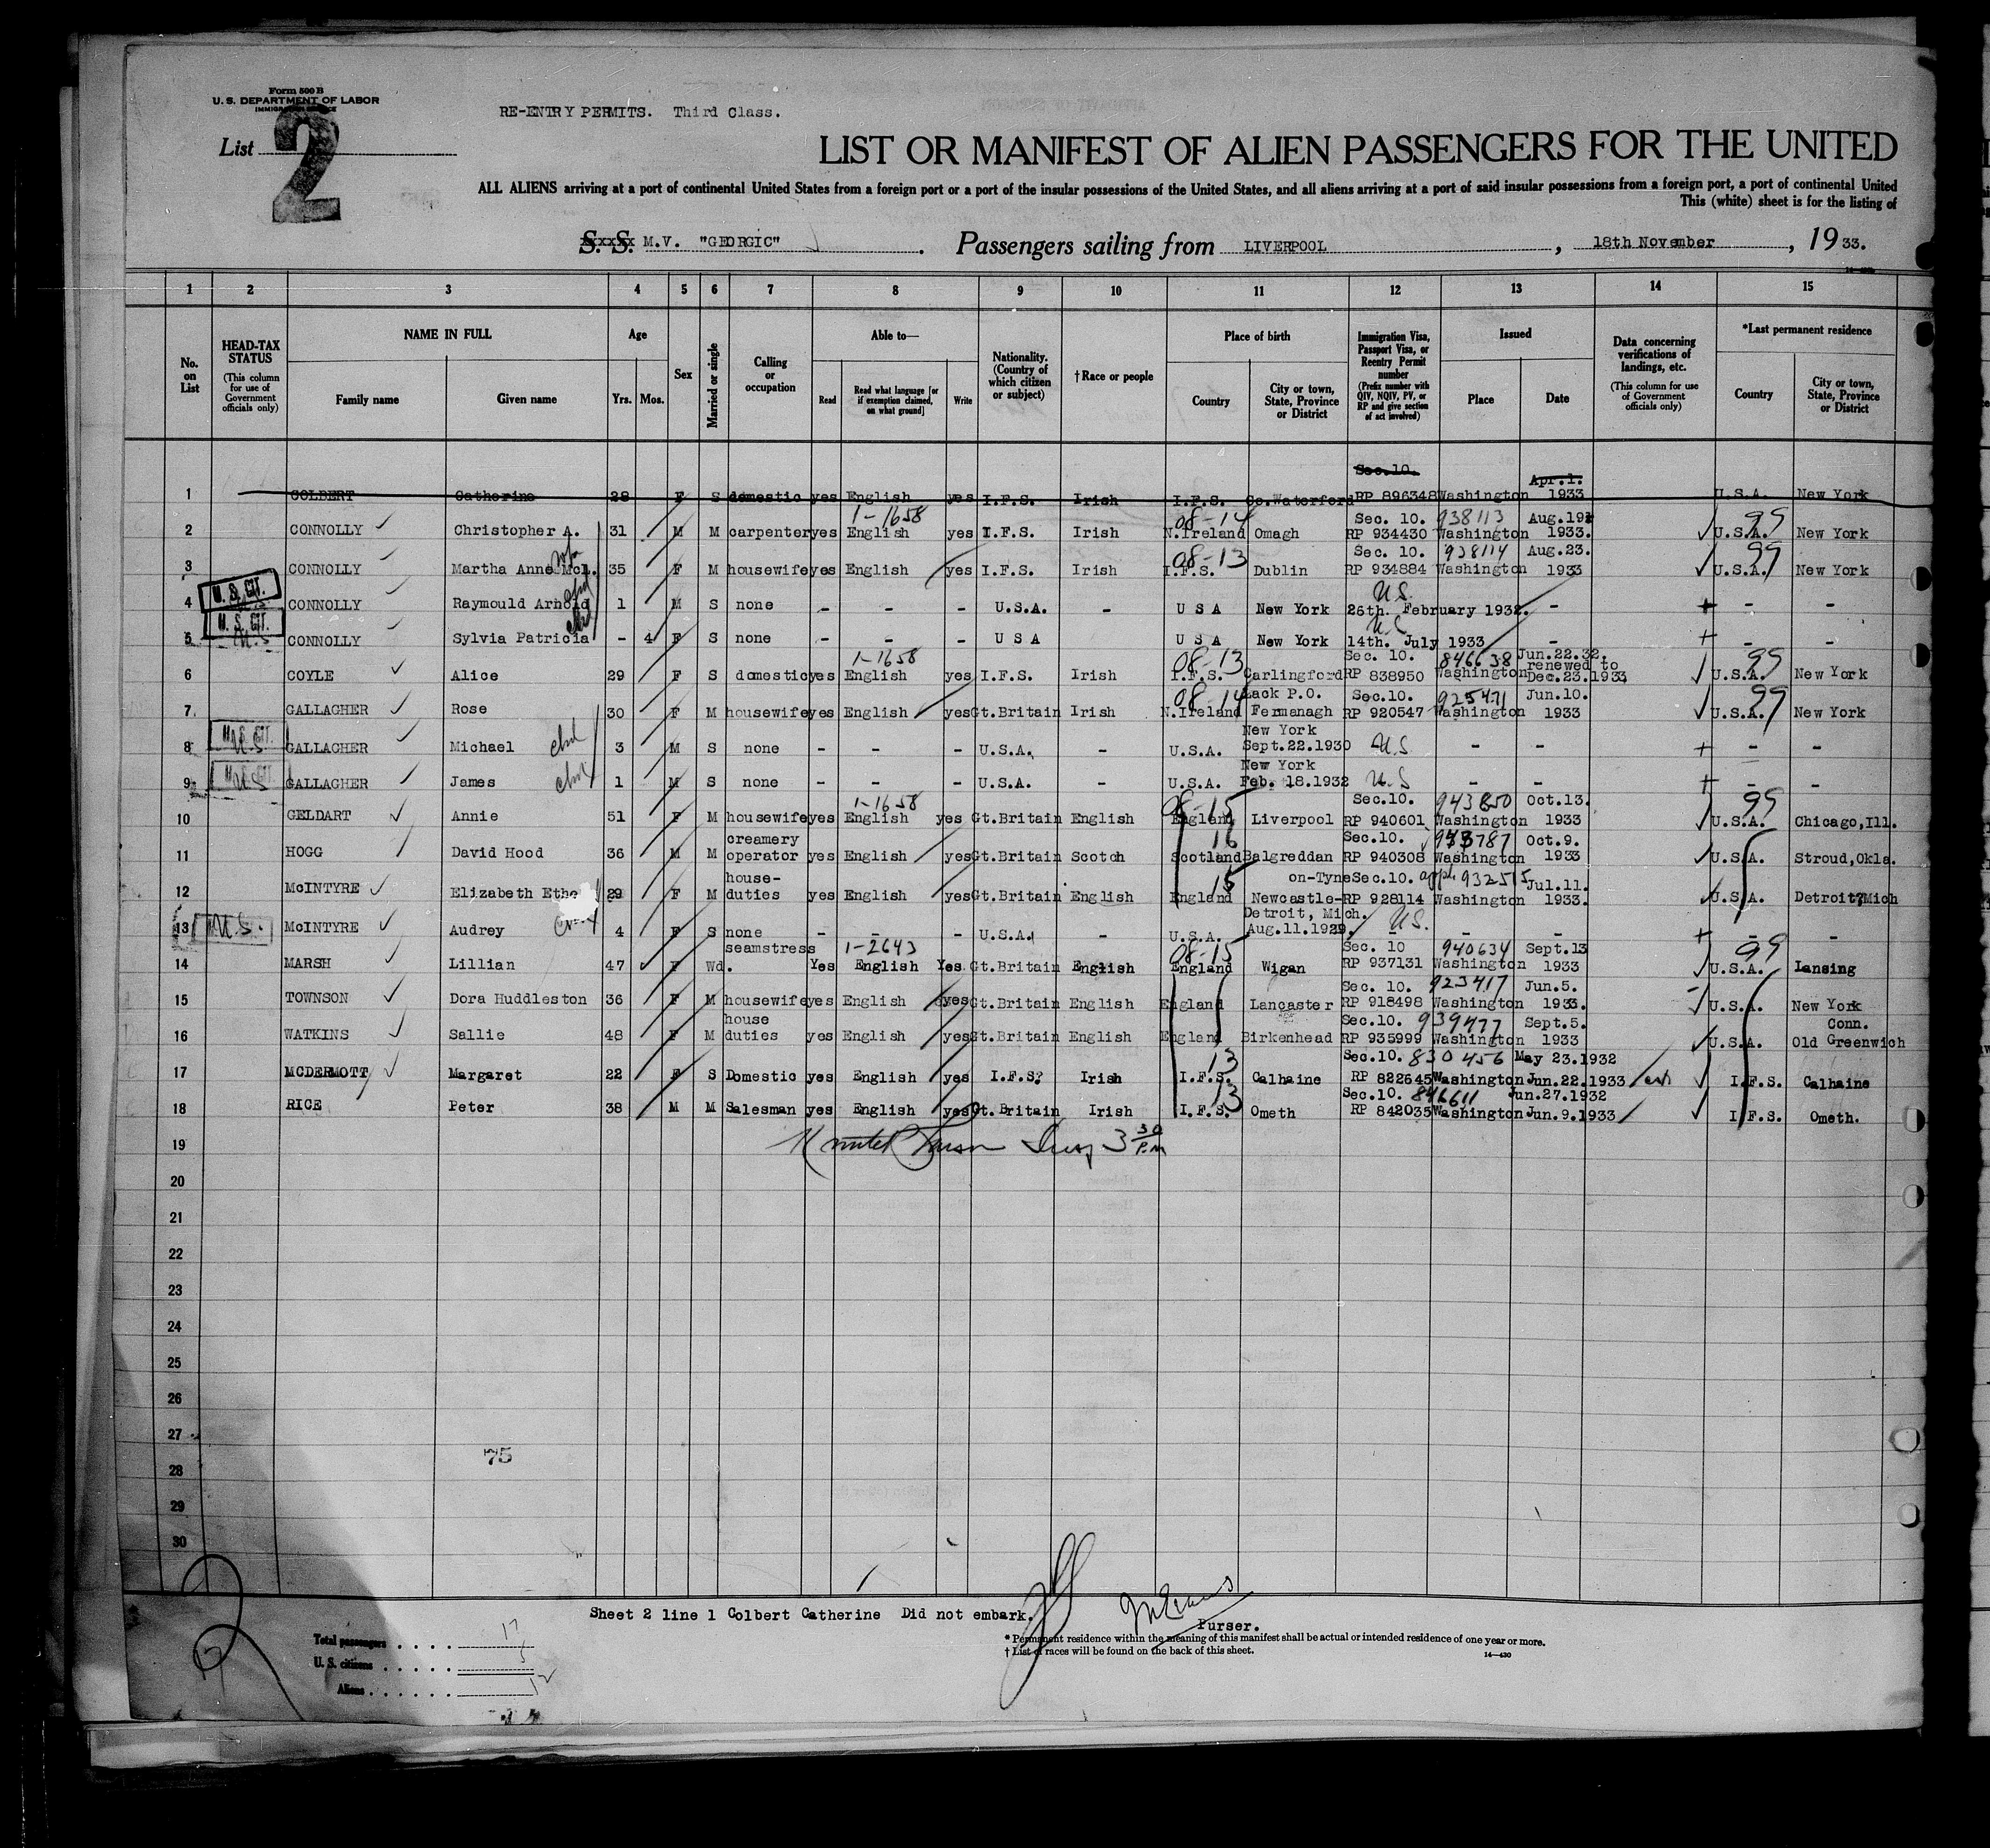 Form 500 B
U. S. DEPARTMENT OF LABOR
RE-ENTRY PERMITS. Third Class.
List 2
LIST OR MANIFEST OF ALIEN PASSENGERS FOR THE UNITED
ALL ALIENS arriving at a port of continental United States from a foreign port or a port of the insular possessions of the United States, and all aliens arriving at a port of said insular possessions from a foreign port, a port of continental United
This (white) sheet is for the listing of
S. S. M.V. "GEORGIC". Passengers sailing from LIVERPOOL, 18th November, 1933.
1 2 3 4 5 6 7 8 9 10 11 12 13 14 15
No. on List
HEAD-TAX STATUS (This column for use of Government officials only)
NAME IN FULL Family name Given name
Age Yrs. Mos.
Sex
Married or single
Calling or occupation
Able to— Read Read what language [or if exemption claimed, on what ground] Write
Nationality. (Country of which citizen or subject)
†Race or people
Place of birth Country City or town, State, Province or District
Immigration Visa, Passport Visa, or Reentry Permit number (Prefix number with QIV, NQIV, PV, or RP and give section of act involved)
Issued Place Date
Data concerning verifications of landings, etc. (This column for use of Government officials only)
*Last permanent residence Country City or town, State, Province or District
Sec.10. Apr.1.
1 COLBERT Catherine 28 F S domestic yes English yes I.F.S. Irish I.F.S. Co.Waterford RP 896348 Washington 1933 U.S.A. New York
1-1658 08-14 Sec. 10. 938113 Aug.19
2 CONNOLLY Christopher A. 31 M M carpenter yes English yes I.F.S. Irish N.Ireland Omagh RP 934430 Washington 1933. U.S.A. 99 New York
08-13 Sec. 10. 938114 Aug.23.
3 CONNOLLY Martha Anne McL. 35 F M housewife yes English yes I.F.S. Irish I.F.S. Dublin RP 934884 Washington 1933 U.S.A. 99 New York
U. S. CIT. U.S.
4 CONNOLLY Raymould Arnold chd 1 M S none - - - U.S.A. - U S A New York 26th. February 1932. - - -
U. S. CIT. U.S
5 CONNOLLY Sylvia Patricia chd - 4 F S none - - - U S A U S A New York 14th. July 1933 - - -
1-1658 08-13 Sec. 10. 846638 Jun.22.32. renewed to
6 COYLE Alice 29 F S domestic yes English yes I.F.S. Irish I.F.S. Carlingford RP 838950 Washington Dec.23.1933 U.S.A. 99 New York
08-14 Lack P.O. Sec.10. 925471 Jun.10.
7 GALLAGHER Rose 30 F M housewife yes English yes Gt.Britain Irish N.Ireland Fermanagh RP 920547 Washington 1933 U.S.A. 99 New York
U.S. CIT. U.S New York
8 GALLAGHER Michael chd 3 M S none - - - U.S.A. - U.S.A. Sept.22.1930 U.S - - - -
U.S. CIT. U.S New York
9 GALLAGHER James chd 1 M S none - - - U.S.A. - U.S.A. Feb. 18.1932 U.S - - - -
1-1658 08-15 Sec.10. 943850 Oct.13.
10 GELDART Annie 51 F M housewife yes English yes Gt.Britain English England Liverpool RP 940601 Washington 1933 U.S.A. 99 Chicago,Ill.
creamery 16 Sec.10. 943787 Oct.9.
11 HOGG David Hood 36 M M operator yes English yes Gt.Britain Scotch Scotland Balgreddan RP 940308 Washington 1933 U.S.A. Stroud,Okla.
house- 15 on-Tyne Sec.10. appl. 932515 Jul.11.
12 McINTYRE Elizabeth Ethe 29 F M duties yes English yes Gt.Britain English England Newcastle- RP 928114 Washington 1933. U.S.A. Detroit,Mich
U.S. Detroit, Mich. U.S.
13 McINTYRE Audrey 4 F S none - - - U.S.A. - U.S.A. Aug.11.1929. - - - - -
seamstress 1-2643 08-15 Sec. 10 940634 Sept.13
14 MARSH Lillian 47 F Wd. Yes English Yes Gt.Britain English England Wigan RP 937131 Washington 1933 U.S.A. 99 Lansing
Sec. 10. 923417 Jun.5.
15 TOWNSON Dora Huddleston 36 F M housewife yes English yes Gt.Britain English England Lancaster RP 918498 Washington 1933. U.S.A. New York
house Sec.10. 939477 Sept.5. Conn.
16 WATKINS Sallie 48 F M duties yes English yes Gt.Britain English England Birkenhead RP 935999 Washington 1933 U.S.A. Old Greenwich
13 Sec.10. 830456 May 23.1932
17 MCDERMOTT Margaret 22 F S Domestic yes English yes I.F.S. Irish I.F.S. Calhaine RP 822645 Washington Jun.22.1933 I.F.S. Calhaine
13 Sec.10. 846611 Jun.27.1932
18 RICE Peter 38 M M Salesman yes English yes Gt.Britain Irish I.F.S. Ometh RP 842035 Washington Jun.9.1933 I.F.S. Ometh.
19 3 30 P.M
20
21
22
23
24
25
26
27
28
29
30
75
Sheet 2 line 1 Colbert Catherine Did not embark.
Purser.
Total passengers . . . . 17
U. S. citizens . . . . . 5
Aliens . . . . . . 12
* Permanent residence within the meaning of this manifest shall be actual or intended residence of one year or more.
† List of races will be found on the back of this sheet.
14—430